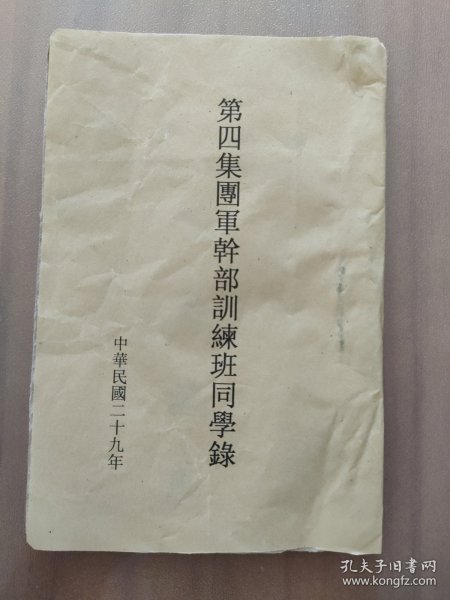 第四集團軍幹部訓練班同學錄
中華民國二十九年
孔夫子旧书网
www.kongfz.com